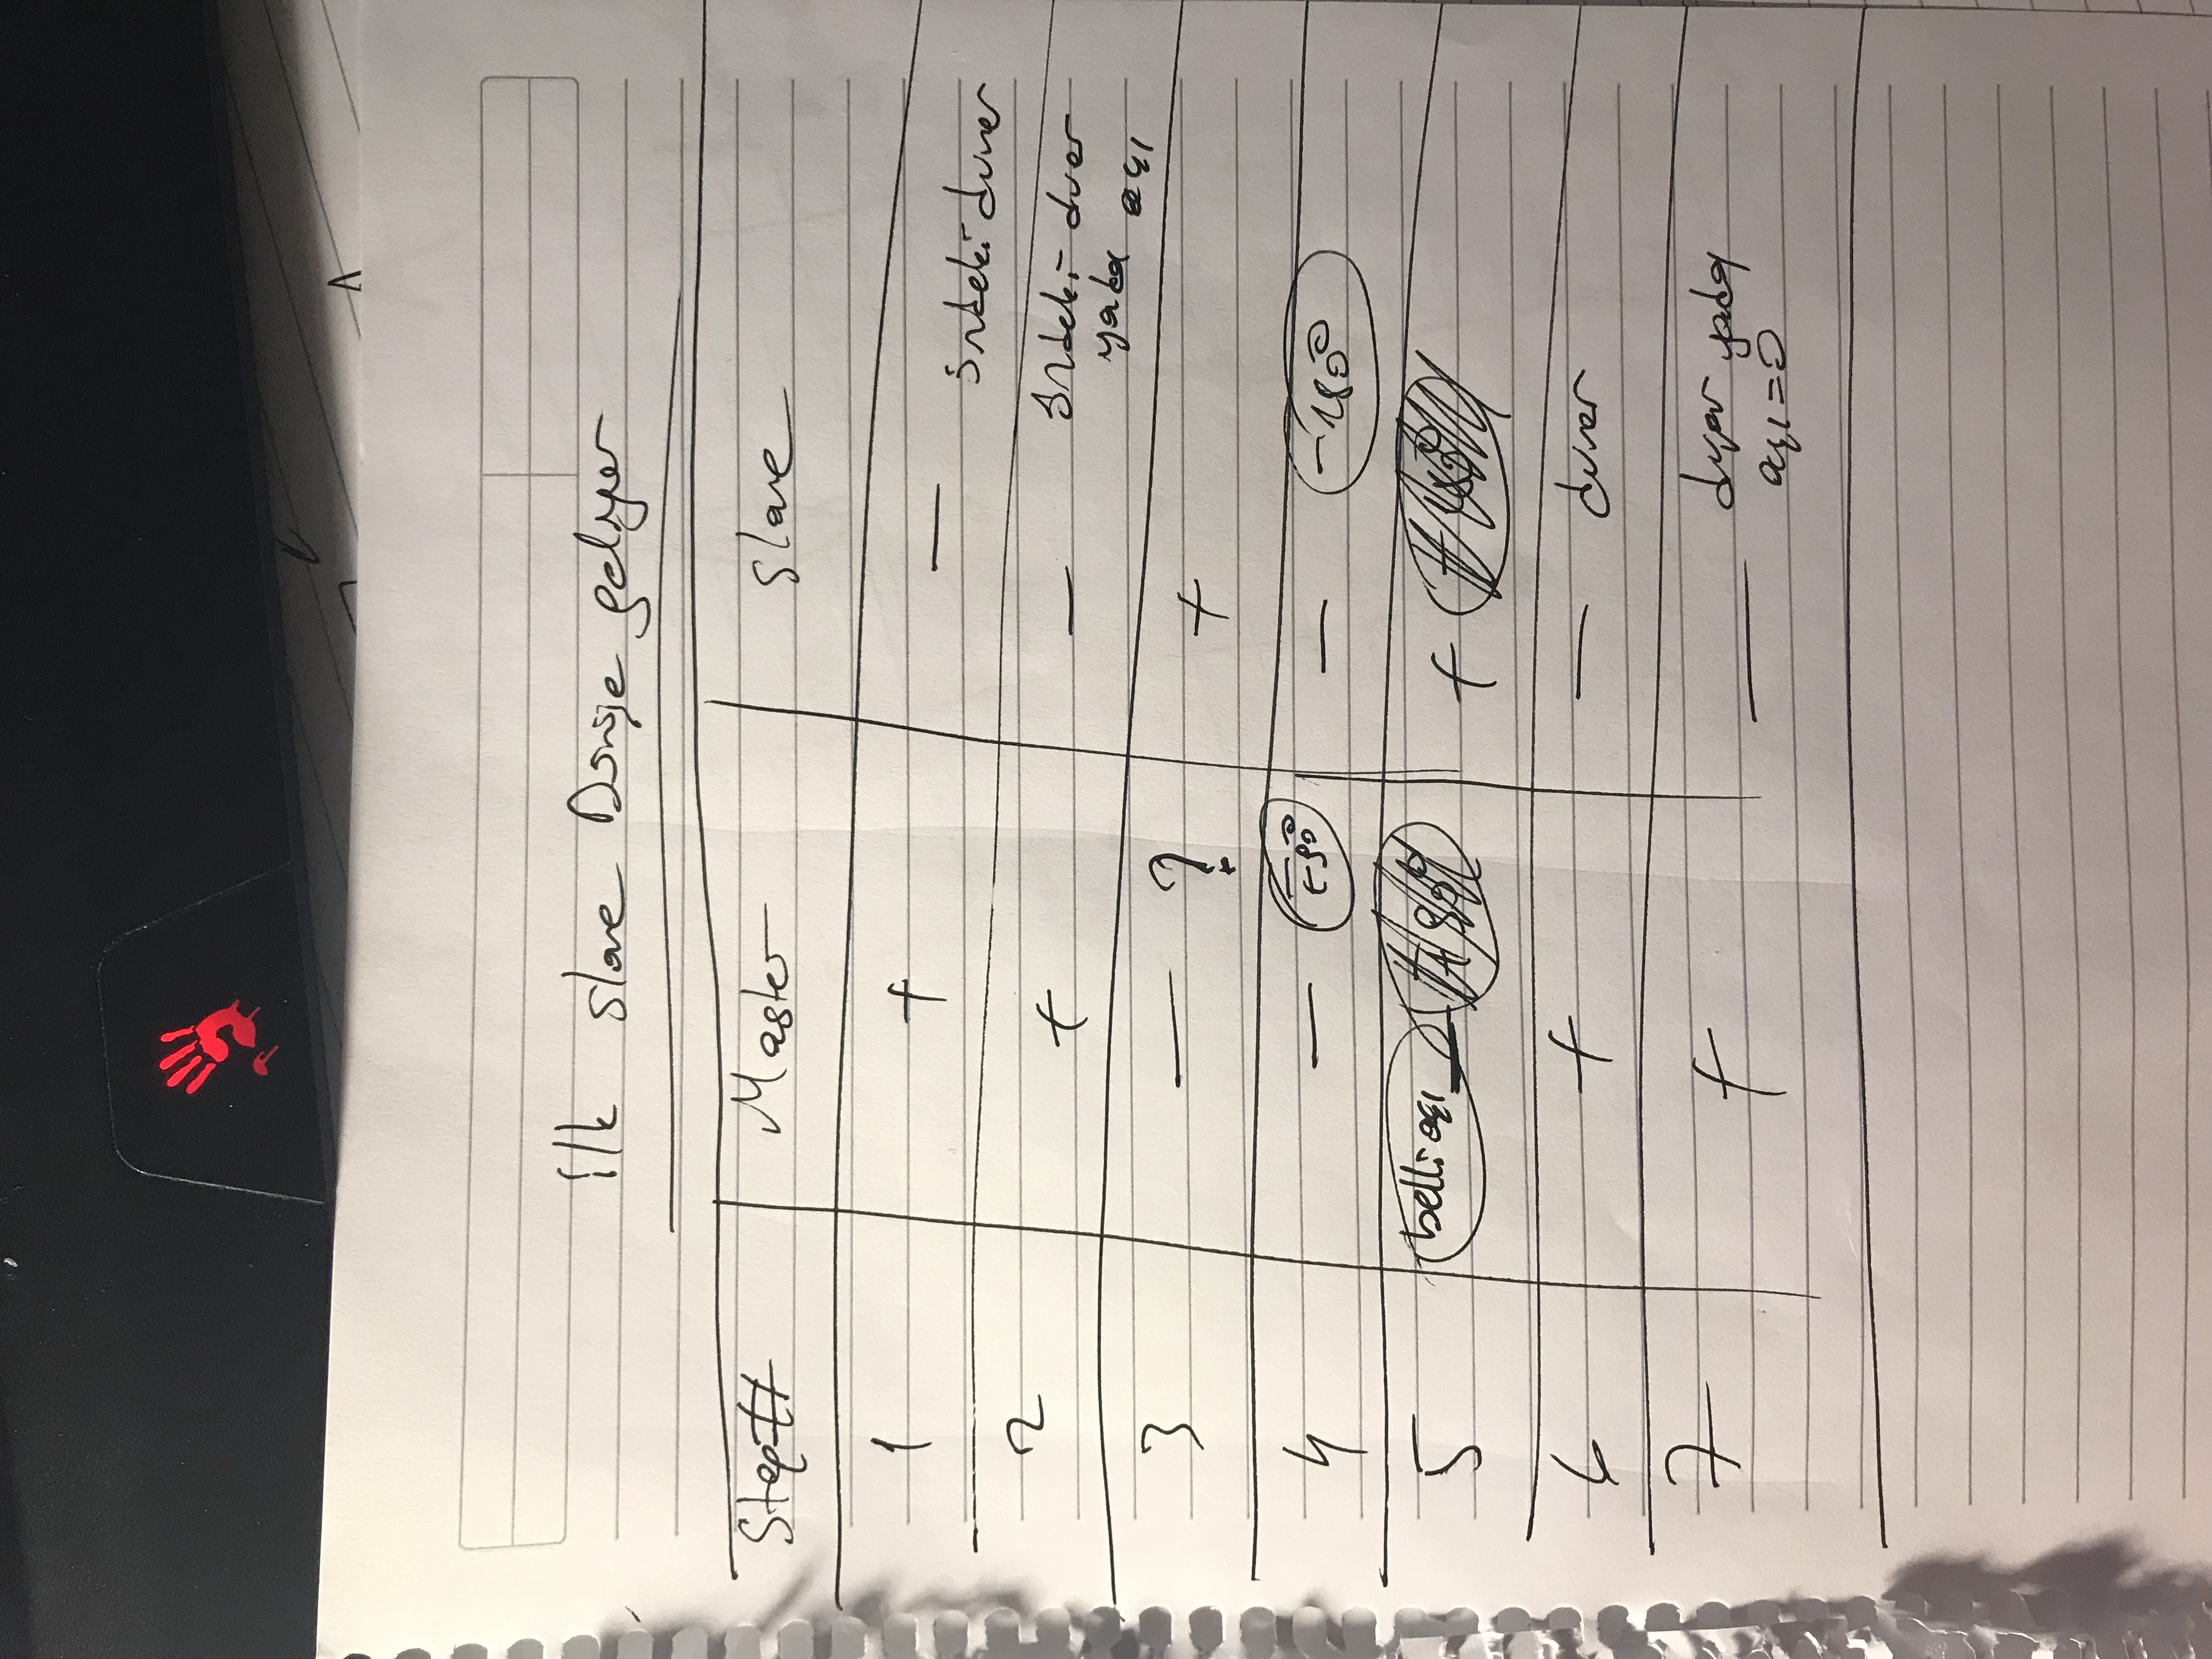 ilk slave Dönüşe geliyor
Step# Master Slave
1 + — öndeki duvar
2 + — öndeki duvar
yada açı
3 — ? +
4 — — -180°
5 belli açı — +
6 + — duvar
7 + — duvar yada
açı=0